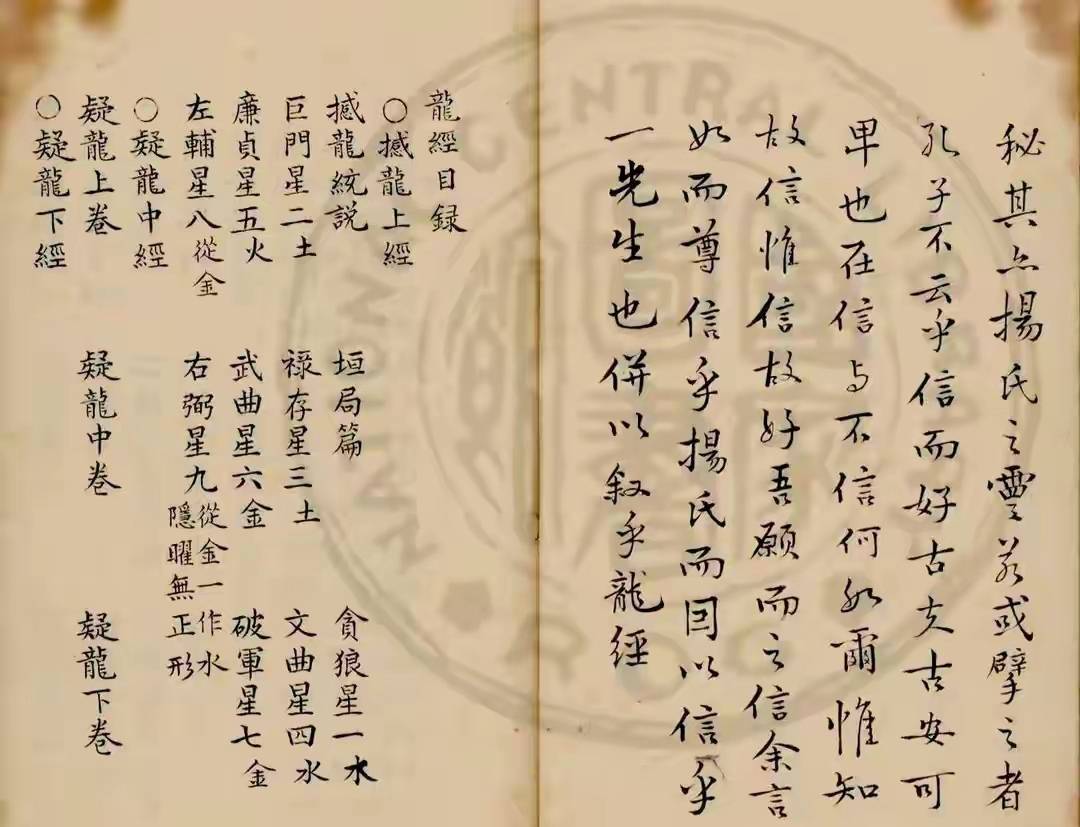 秘其亦揚氏之靈若或擘之者
孔子不云乎信而好古夫古安可
卑也在信与不信何如爾惟知
故信惟信故好吾願而之信余言
如而尊信乎揚氏而囙以信乎
一先生也併以叙乎龍經
龍經目録
○撼龍上經
撼龍統説 垣局篇 貪狼星一水
巨門星二土 祿存星三土 文曲星四水
廉貞星五火 武曲星六金 破軍星七金
左輔星八從金 右弼星九從金一作水隱曜無正形
○疑龍中經
疑龍上卷 疑龍中卷 疑龍下卷
○疑龍下經
CENTRAL